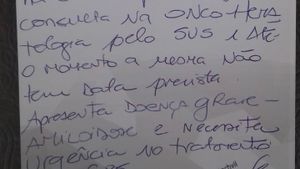 consulta na Onco-Hema
tologia pelo SUS e até
o momento a mesma não
tem data prevista.
Apresenta doença grave -
Amiloidose e necessita
urgência no tratamento